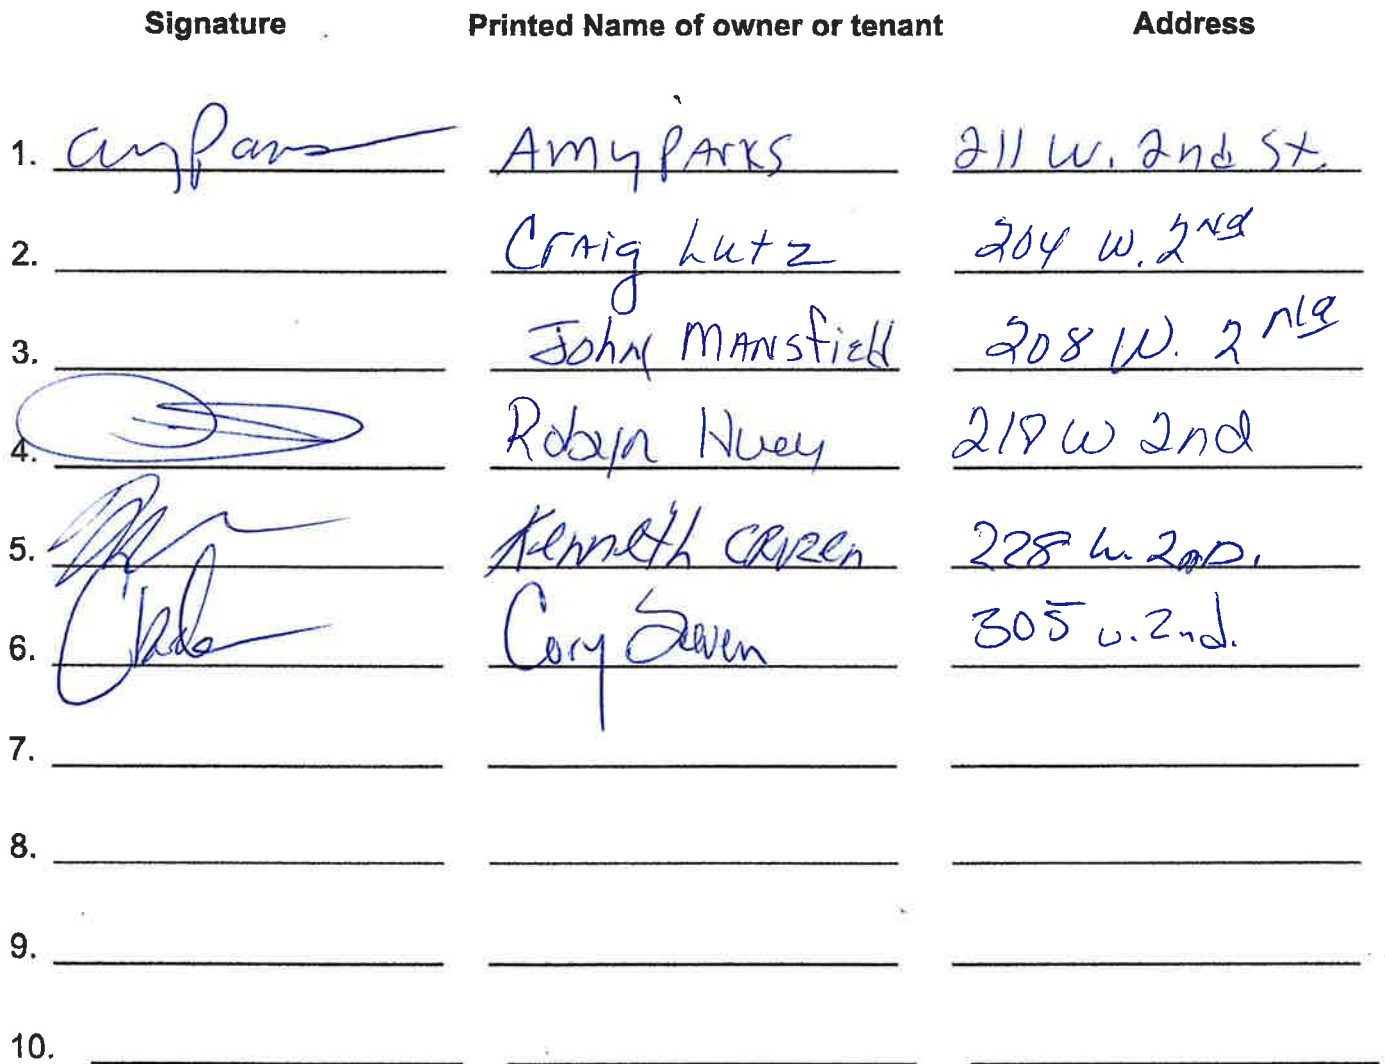 Signature Printed Name of owner or tenant Address
1. Amy Parks 211 W. 2nd St.
2. Craig Lutz 204 W. 2nd
3. John Mansfield 208 W. 2nd
4. Robyn Huey 218 W 2nd
5. Kenneth 228 W. 2nd.
6. Cory 305 W. 2nd.
7.
8.
9.
10.